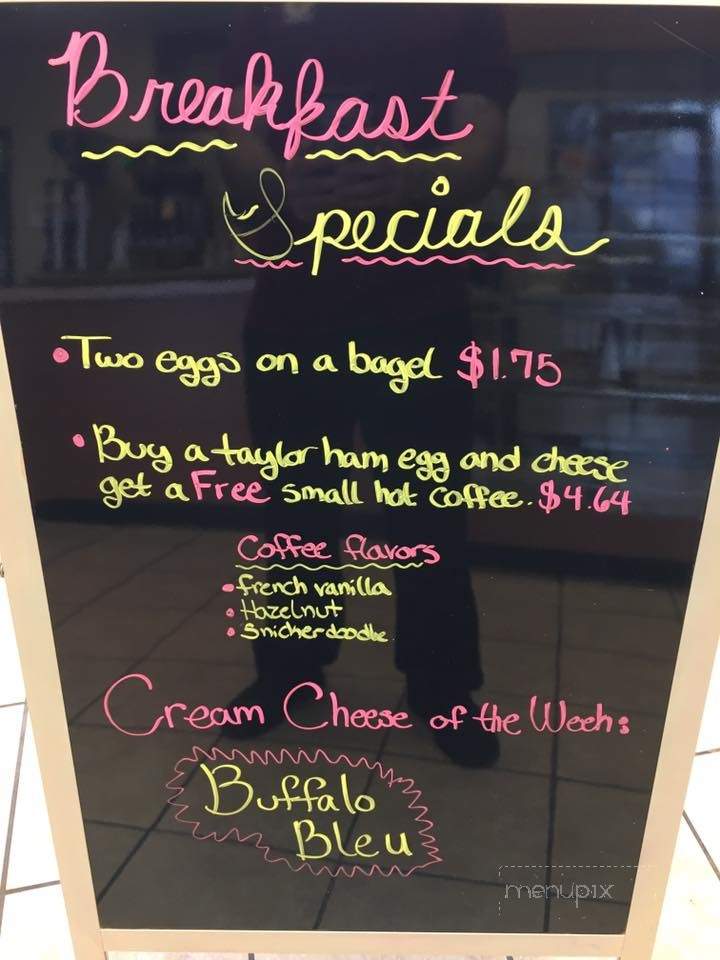 Breakfast
Specials
• Two eggs on a bagel $1.75
• Buy a taylor ham egg and cheese
get a Free small hot coffee. $4.64
Coffee flavors
• french vanilla
• Hazelnut
• Snickerdoodle
Cream Cheese of the Week:
Buffalo
Bleu
menupix